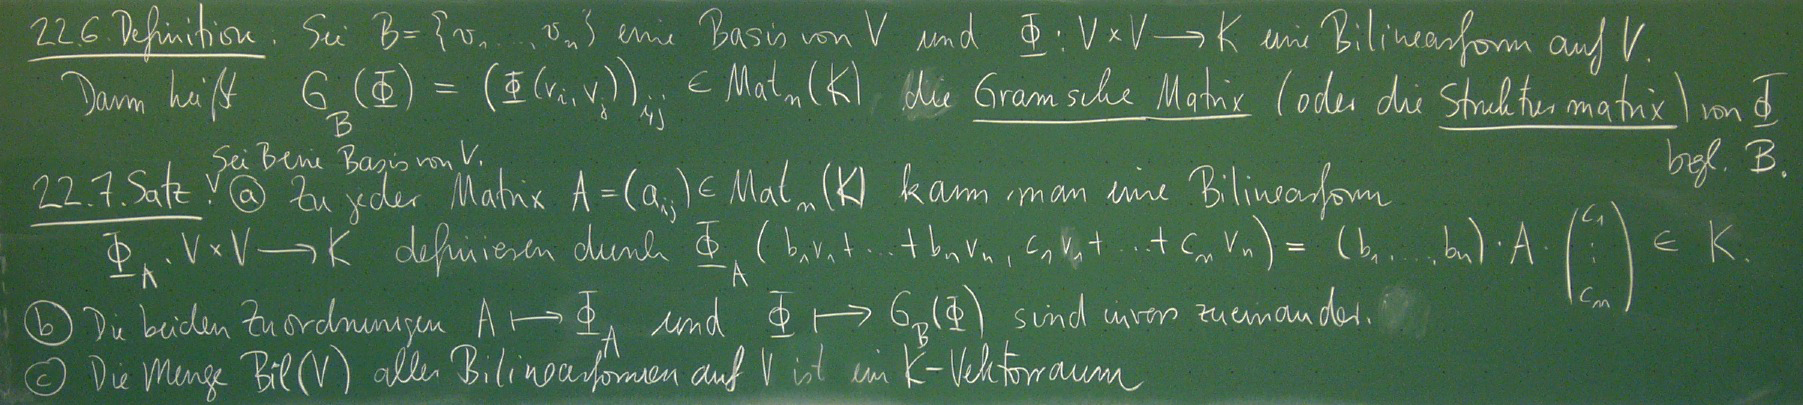 22.6. Definition. Sei B = {v₁, ..., vₙ} eine Basis von V und Φ : V × V → K eine Bilinearform auf V.
Dann heißt G_B(Φ) = (Φ(vᵢ, vⱼ))ᵢ,ⱼ ∈ Matₙ(K) die Gramsche Matrix (oder die Strukturmatrix) von Φ
bzgl. B.
Sei B eine Basis von V.
22.7. Satz. (a) Zu jeder Matrix A = (aᵢⱼ) ∈ Matₙ(K) kann man eine Bilinearform
Φ_A : V × V → K definieren durch Φ_A (b₁v₁ + ... + bₙvₙ, c₁v₁ + ... + cₙvₙ) = (b₁, ..., bₙ) · A · (c₁ ⋮ cₙ) ∈ K.
(b) Die beiden Zuordnungen A ↦ Φ_A und Φ ↦ G_B(Φ) sind invers zueinander.
(c) Die Menge Bil(V) aller Bilinearformen auf V ist ein K-Vektorraum